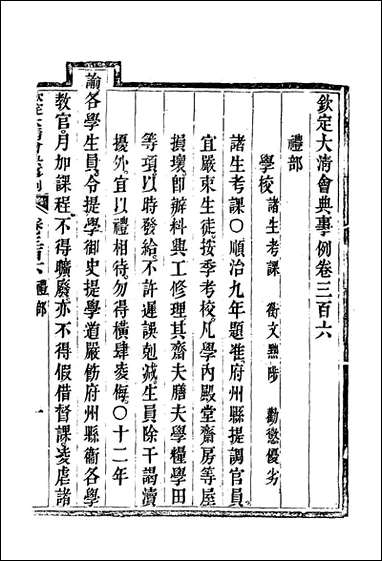 欽定大清會典事例卷三百六
禮部
學校 諸生考課 衡文黜陟 勸懲優劣
諸生考課○順治九年題准府州縣提調官員
宜嚴束生徒按季考校凡學內殿堂齋房等屋
損壞卽辦料興工修理其齋夫膳夫學糧學田
等項以時發給不許遲誤剋減生員除干謁瀆
擾外宜以禮相待勿得橫肆凌侮○十二年
諭各學生員令提學御史提學道嚴飭府州縣衞各學
教官月加課程不得曠廢亦不得假借督課凌虐諸
卷三百六 禮部 一